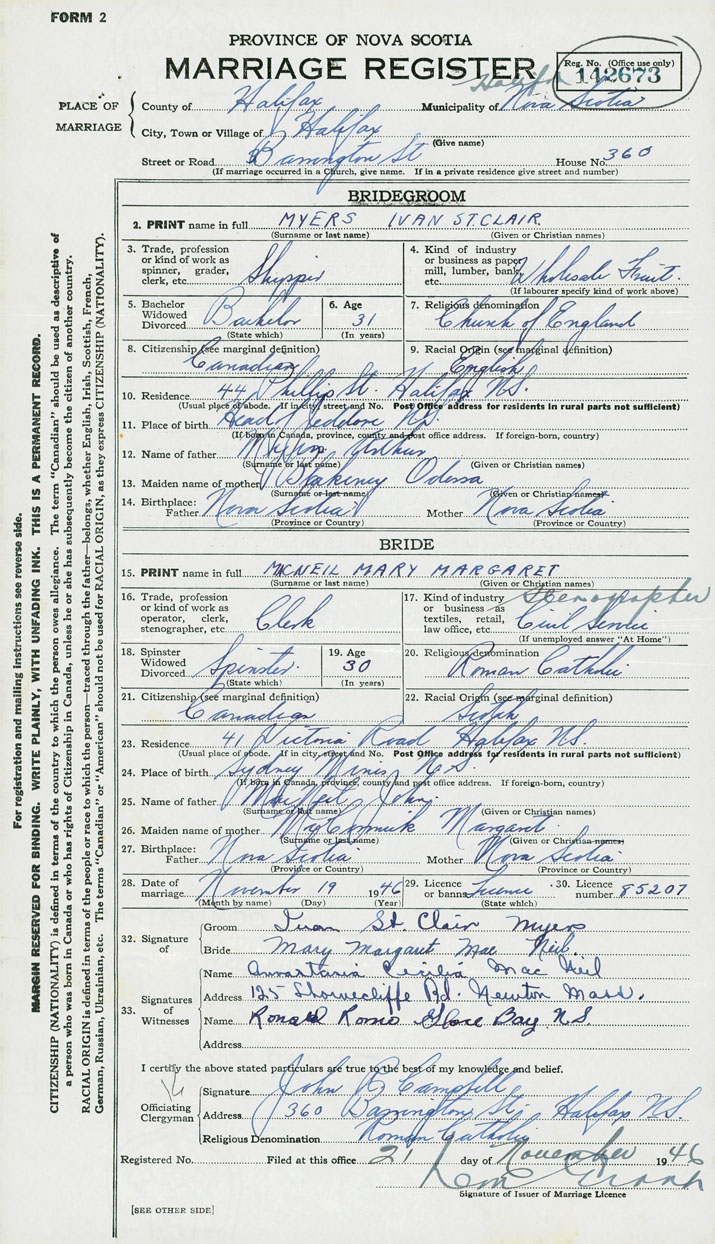 FORM 2
PROVINCE OF NOVA SCOTIA
MARRIAGE REGISTER
Reg. No. (Office use only)
142673
PLACE OF MARRIAGE
County of Halifax Municipality of Halifax Nova Scotia
City, Town or Village of Halifax
(Give name)
Street or Road Barrington St House No. 360
(If marriage occurred in a Church, give name. If in a private residence give street and number)
BRIDEGROOM
2. PRINT name in full MYERS IVAN ST.CLAIR
(Surname or last name) (Given or Christian names)
3. Trade, profession or kind of work as spinner, grader, clerk, etc. Shipper
4. Kind of industry or business as paper mill, lumber, bank, etc. Wholesale Fruit.
(If labourer specify kind of work above)
5. Bachelor Widowed Divorced Bachelor
(State which)
6. Age 31
(In years)
7. Religious denomination
Church of England
8. Citizenship (see marginal definition)
Canadian
9. Racial Origin (see marginal definition)
English
10. Residence 44 Phillip St. Halifax N.S.
(Usual place of abode. If in city street and No. Post Office address for residents in rural parts not sufficient)
11. Place of birth Head Jeddore N.S.
(If born in Canada, province, county and post office address. If foreign-born, country)
12. Name of father Myers Arthur
(Surname or last name) (Given or Christian names)
13. Maiden name of mother Blakeney Odessa
(Surname or last name) (Given or Christian names)
14. Birthplace: Father Nova Scotia Mother Nova Scotia
(Province or Country) (Province or Country)
BRIDE
15. PRINT name in full MCNEIL MARY MARGARET
(Surname or last name) (Given or Christian names)
16. Trade, profession or kind of work as operator, clerk, stenographer, etc. Clerk
17. Kind of industry or business as textiles, retail, law office, etc. Stenographer Civil Service
(If unemployed answer "At Home")
18. Spinster Widowed Divorced Spinster.
(State which)
19. Age 30
(In years)
20. Religious denomination
Roman Catholic
21. Citizenship (see marginal definition)
Canadian
22. Racial Origin (see marginal definition)
Scotch
23. Residence 41 Victoria Road Halifax N.S.
(Usual place of abode. If in city, street and No. Post Office address for residents in rural parts not sufficient)
24. Place of birth Sydney Mines N.S.
(If born in Canada, province, county and post office address. If foreign-born, country)
25. Name of father MacNeil, John.
(Surname or last name) (Given or Christian names)
26. Maiden name of mother McCormick Margaret
(Surname or last name) (Given or Christian names)
27. Birthplace: Father Nova Scotia Mother Nova Scotia
(Province or Country) (Province or Country)
28. Date of marriage November 19 1946
(Month by name) (Day) (Year)
29. Licence or banns Licence
(State which)
30. Licence number 85207
32. Signature of
Groom Ivan St Clair Myers
Bride Mary Margaret Mac Neil.
33. Signatures of Witnesses
Name Cecilia Mac Neil
Address 125 Shorncliffe Rd. Newton Mass.
Name Ronald Romo Glace Bay N.S.
Address
I certify the above stated particulars are true to the best of my knowledge and belief.
Officiating Clergyman
Signature John R Campbell
Address 360 Barrington St., Halifax N.S.
Religious Denomination Roman Catholic
Registered No. Filed at this office 21 day of November 1946
Signature of Issuer of Marriage Licence
[SEE OTHER SIDE]
For registration and mailing instructions see reverse side.
MARGIN RESERVED FOR BINDING. WRITE PLAINLY, WITH UNFADING INK. THIS IS A PERMANENT RECORD.
CITIZENSHIP (NATIONALITY) is defined in terms of the country to which the person owes allegiance. The term "Canadian" should be used as descriptive of
a person who was born in Canada or who has rights of Citizenship in Canada, unless he or she has subsequently become the citizen of another country.
RACIAL ORIGIN is defined in terms of the people or race to which the person—traced through the father—belongs, whether English, Irish, Scottish, French,
German, Russian, Ukrainian, etc. The terms "Canadian" or "American" should not be used for RACIAL ORIGIN, as they express CITIZENSHIP (NATIONALITY).